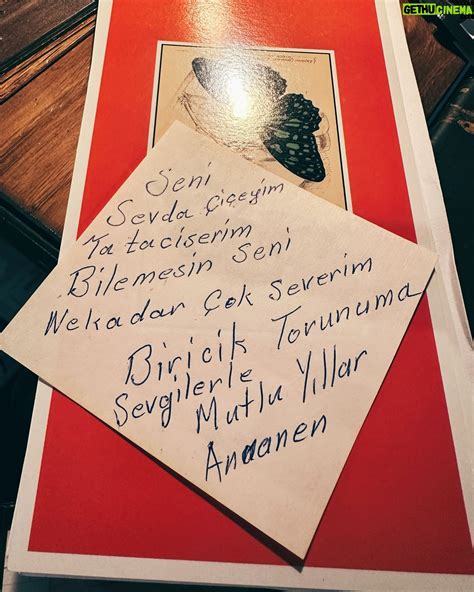 GETHUCINEMA
Seni
Sevda Çiçeyim
Ta taciserim
Bilemesin Seni
Nekadar Çok Severim
Biricik Torunuma
Sevgilerle
Mutlu Yıllar
Anaanen